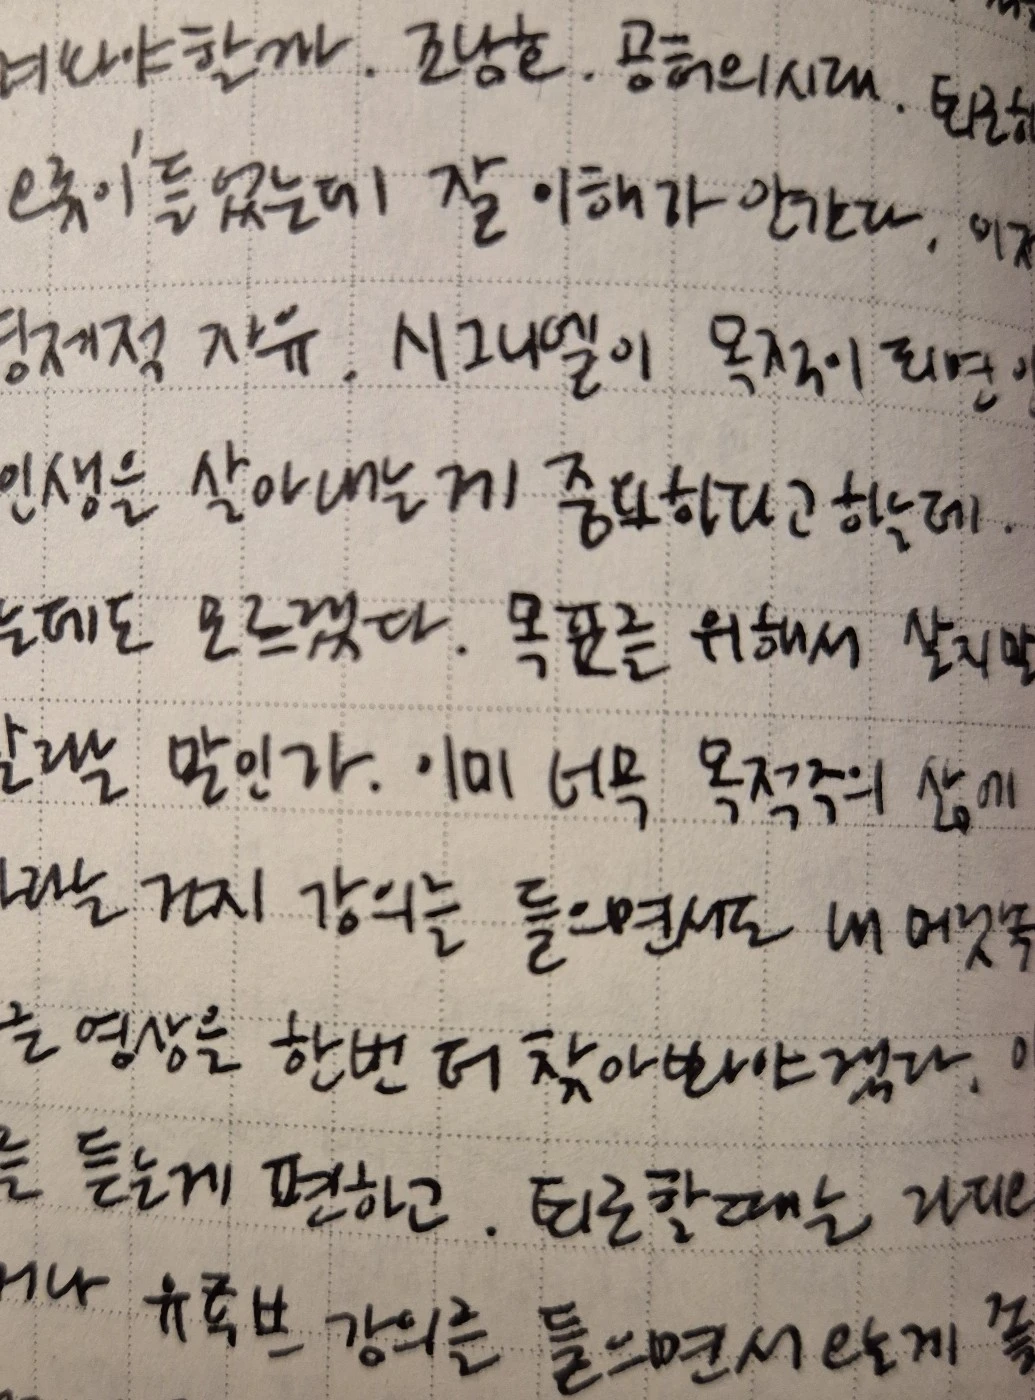 려봐야할까. 조남호. 공허의시대. 퇴근
오롯이 들었는데 잘 이해가 안간다. 이
경제적 자유. 시그니엘이 목적이 되면
인생을 살아내는게 중요하다고하는데.
는데도 모르겠다. 목표를 위해서 살지말
말라는 말인가. 이미 너무 목적주의 삶에
라는 건지 강의는 들으면서도 내 머릿속
영상을 한번 더 찾아봐야겠다.
를 듣는게 편하고. 퇴근할때는 라디오
거나 유튜브 강의를 들으면서 오는게